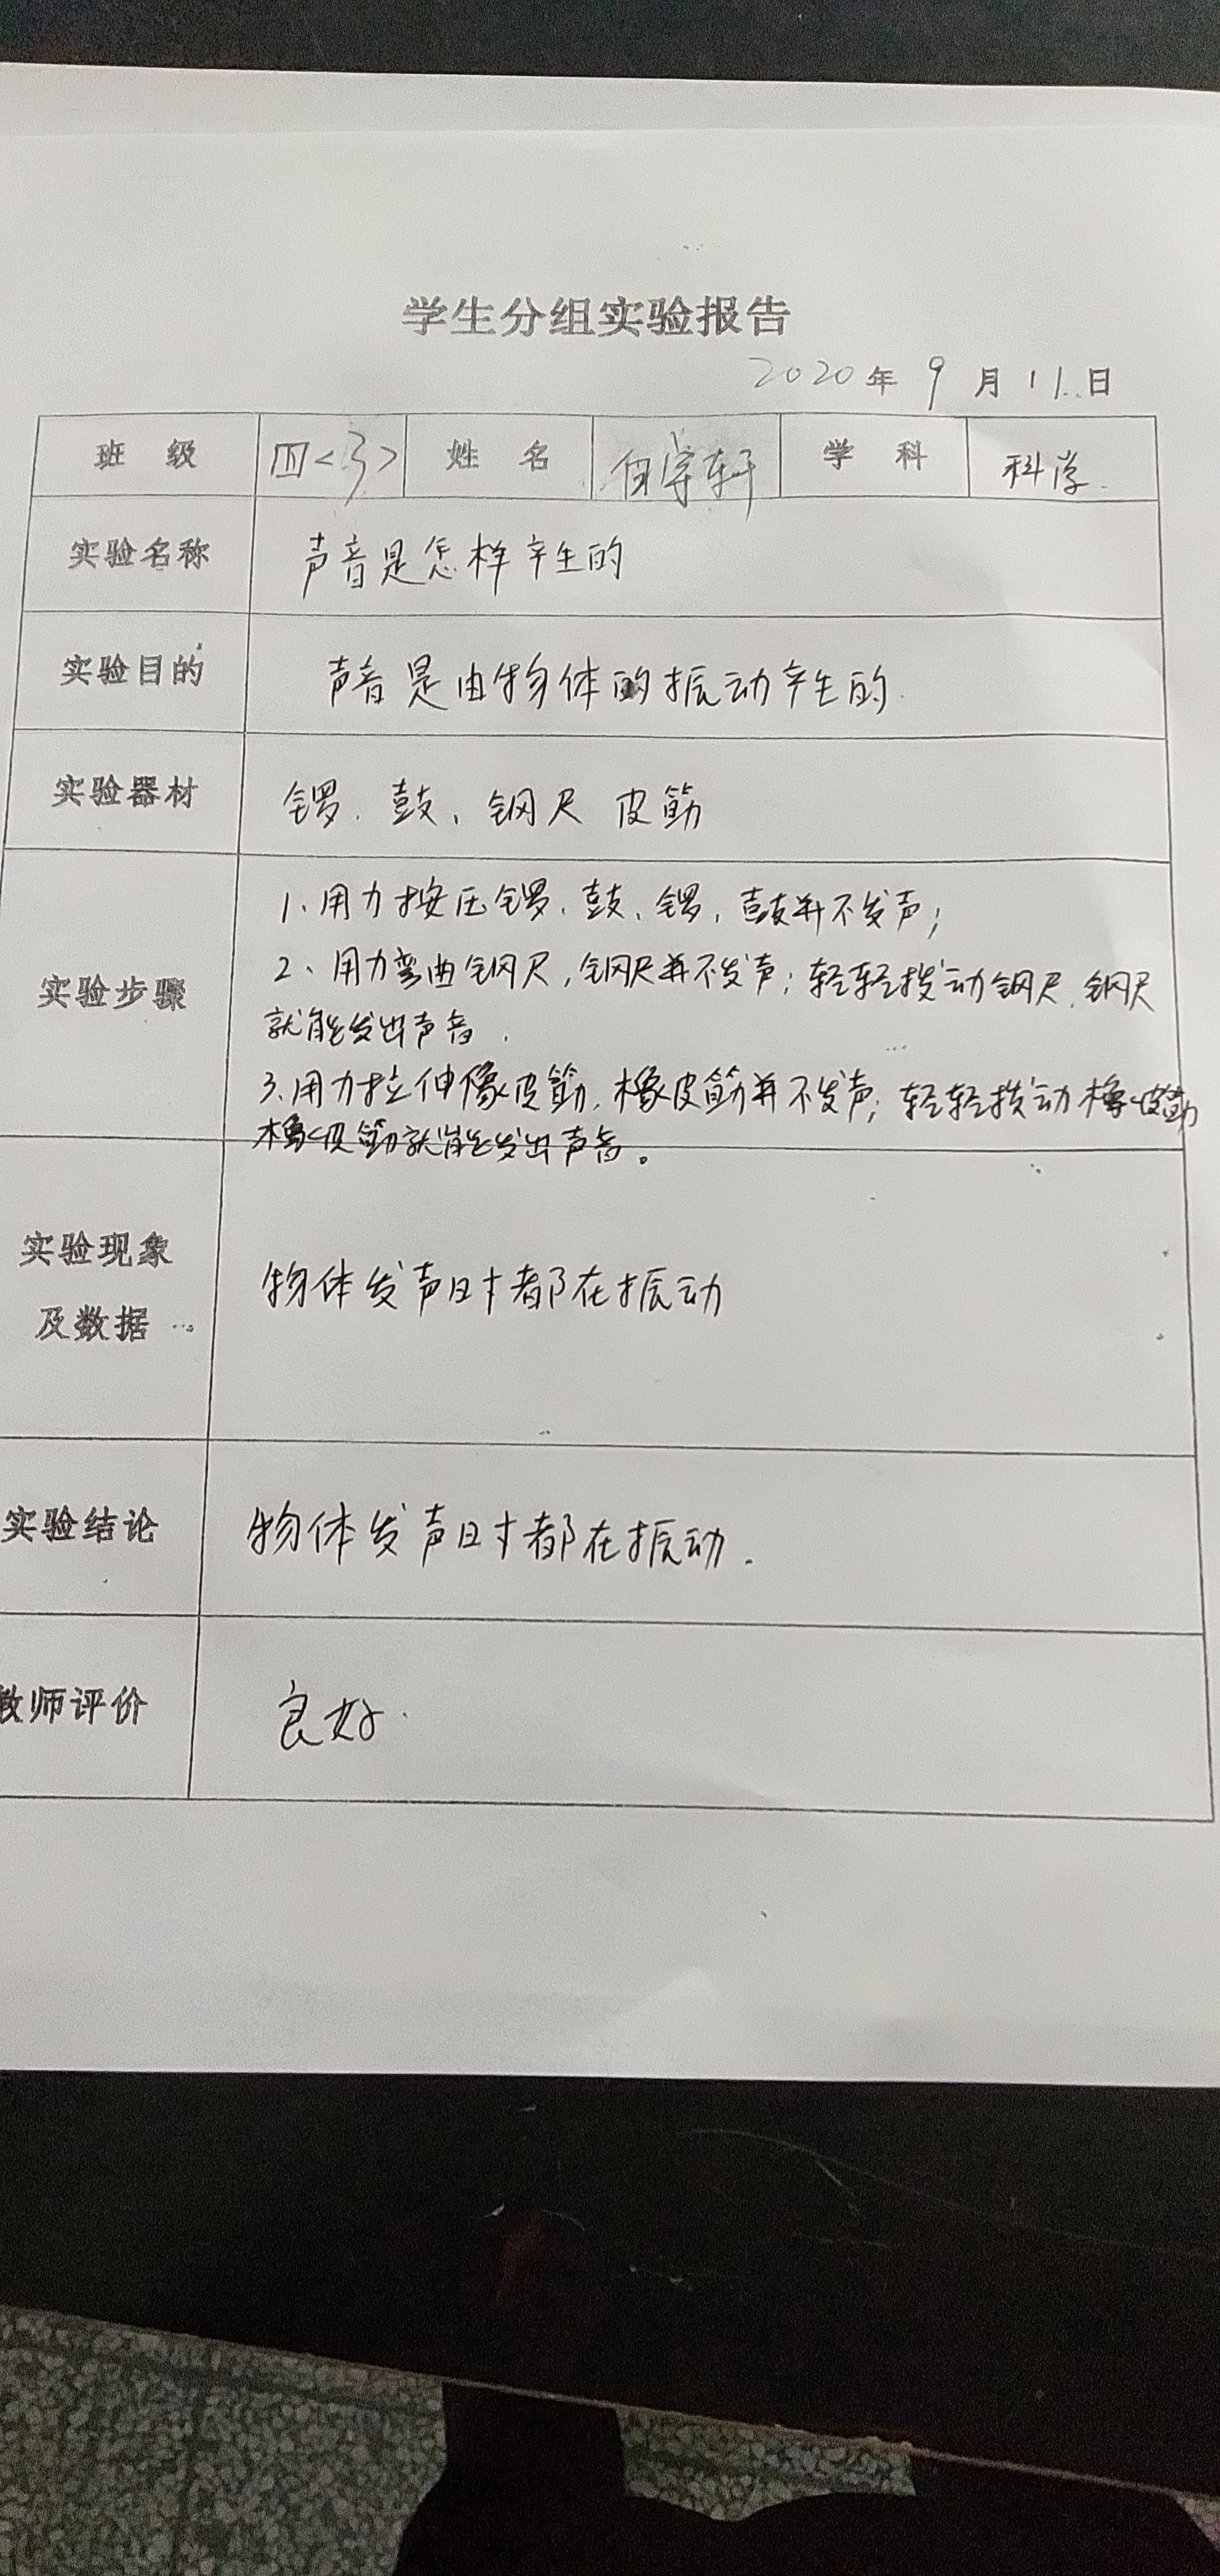 学生分组实验报告
2020年9月11日
班 级 四<3> 姓 名 宇轩 学 科 科学
实验名称 声音是怎样产生的
实验目的 声音是由物体的振动产生的.
实验器材 锣、鼓、钢尺 皮筋
实验步骤
1、用力按压锣、鼓、锣、鼓并不发声;
2、用力弯曲钢尺,钢尺并不发声;轻轻拨动钢尺、钢尺
就能发出声音.
3、用力拉伸像皮筋,橡皮筋并不发声;轻轻拨动橡皮筋
橡皮筋就能发出声音。
实验现象
及数据
物体发声时都在振动
实验结论 物体发声时都在振动.
教师评价 良好.